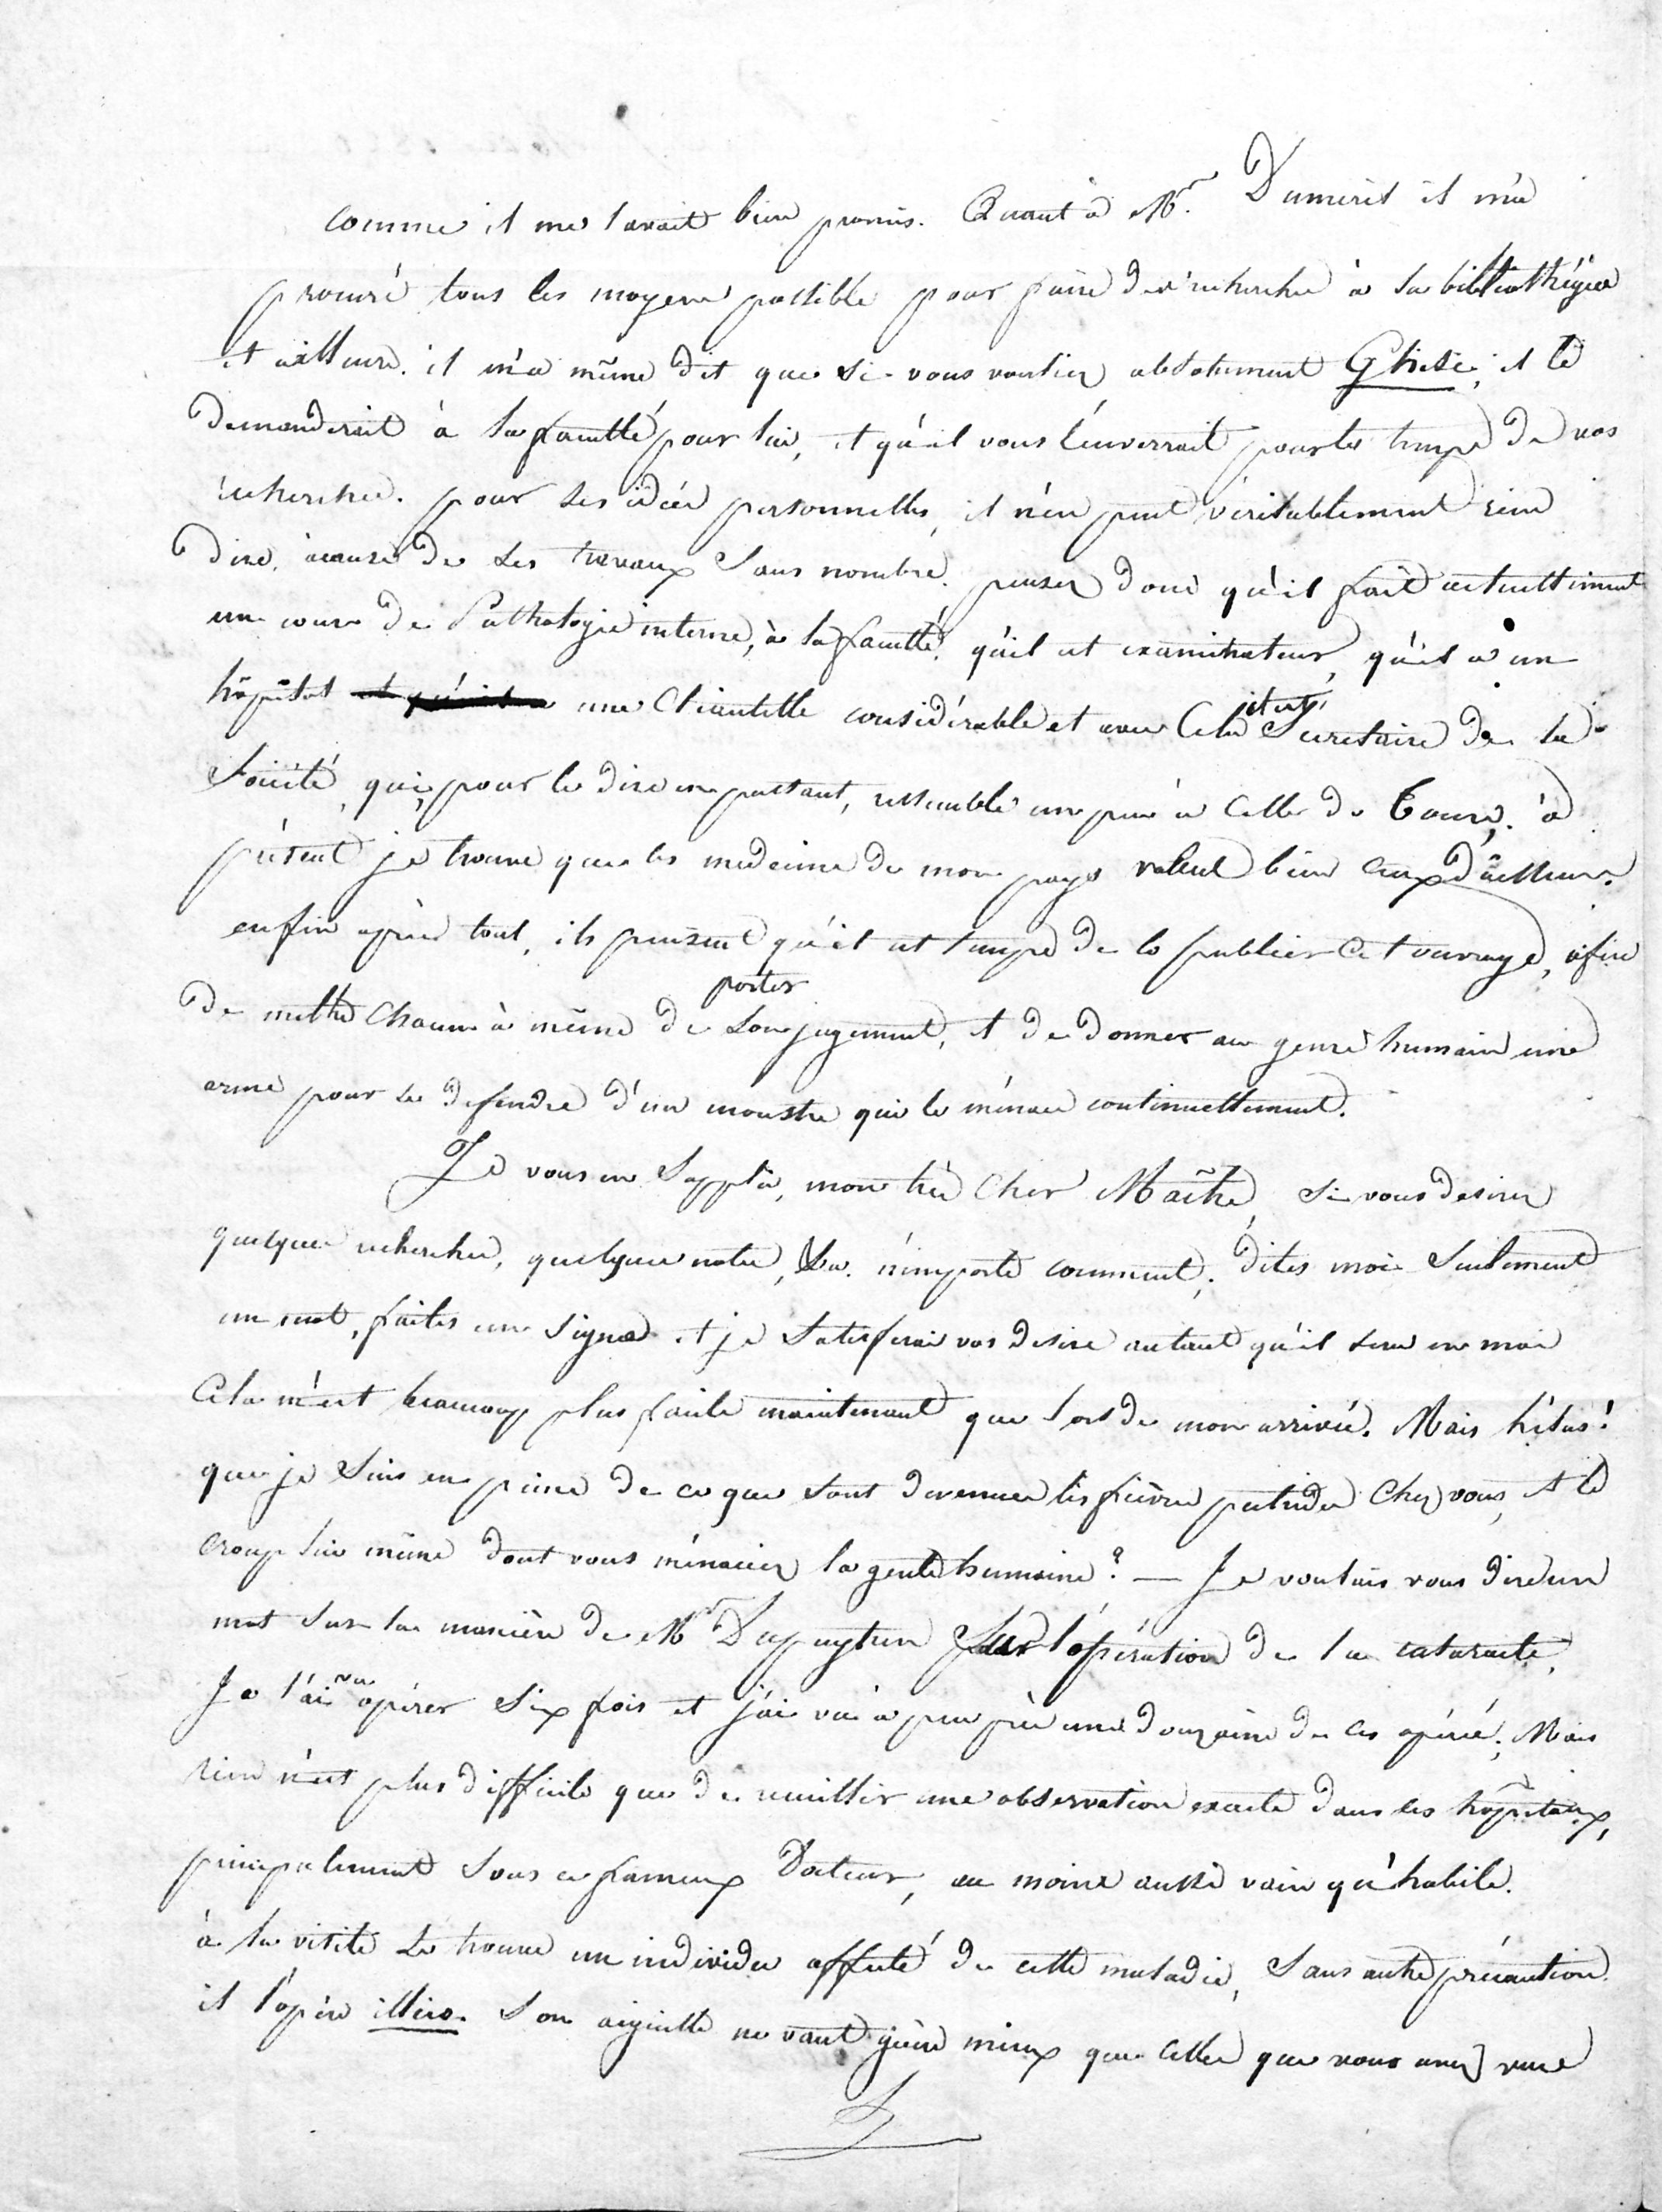 comme il me l'avait bien promis. Quant à Mr. Dumeril il m'a
procuré tous les moyens possible pour faire des recherches à la bibliothéque
et ailleurs. il m'a même dit que si vous vouliez absolument Ghisi, il le
demanderait à la faculté pour lui, et qu'il vous l'enverrait pour le temps de vos
recherches. pour ses idées personnelles, il n'en peut véritablement rien
dire, àcause de ses travaux sans nombre. pensez donc qu'il fait actuellement
un cours de Pathologie interne, à la faculté, qu'il est examinateur, qu'il a un
hôpital et qu'il a une Clientelle considérable et avec Cela Secretaire de la
Société, qui, pour le dire en passant, ressemble un peu à Celle de Tours. à
présent je trouve que les medecins de mon pays valent bien Ceux d'ailleurs.
enfin après tout, ils pensent qu'il est temps de le publier Cet ouvrage, afin
de mettre Chacun à même de porter son jugement, et de donner au genre humain une
arme pour se defendre d'un monstre qui le ménace continuellement.
Je vous en supplie, mon très Cher Maître, si vous desirez
quelques recherches, quelques notes, &a. n'importe comment; dites moi seulement
un mot, faites un signe et je satisferai vos desirs autant qu'il sera en moi
Cela m'est beaucoup plus facile maintenant que lors de mon arrivée. Mais hélas!
que je suis en peine de ce que sont devenues les fièvres putrides Chez vous, et le
croup lui même dont vous ménaciez la gente humaine? — Je voulais vous dire un
mot sur la manière de Mr Dupuytren sur l'opération de la cataracte,
Je l'ai vu opérer six fois et j'ai vu à peu près une douzaine de ces opérés; Mais
rien n'est plus difficile que de recuillir une observation exacte dans les hôpitaux,
principalement sous ce fameux Docteur, au moins aussi vain qu'habile.
à la visite se trouve un individu affecté de cette maladie, sans autre précaution
il l'opère illico. Son aiguille ne vaut guère mieux que Celle que vous avez vue